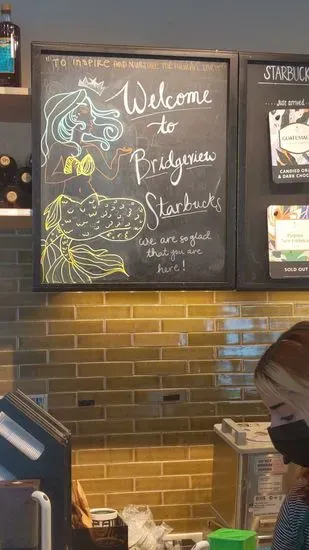 "TO INSPIRE AND NURTURE THE HUMAN SPIRIT"
Welcome
to
Bridgeview
Starbucks
We are so glad
that you are
here!
STARBUCK
Just arrived
GUATEMALA
CANDIED ORA
& DARK CH
SOLD OUT